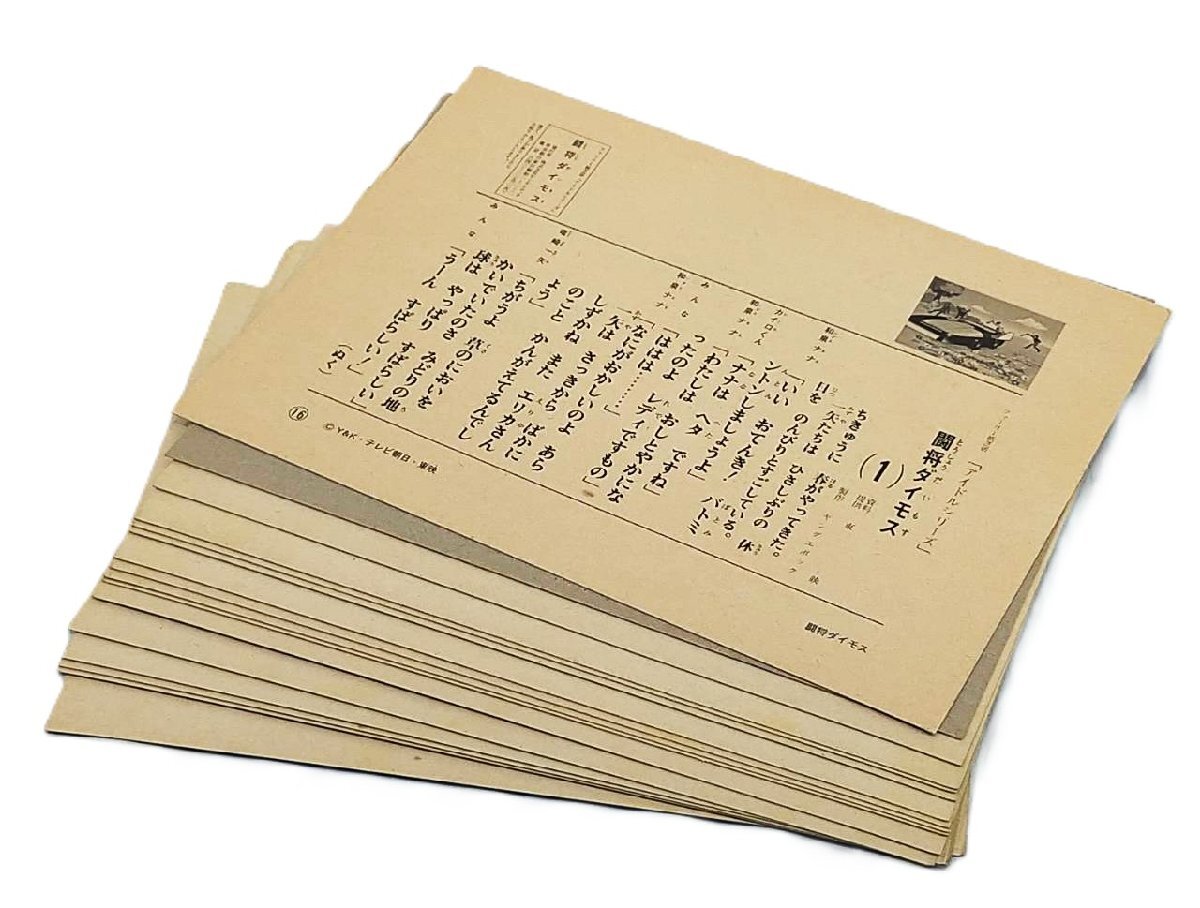 「アイドルシリーズ」
闘将ダイモス
(1)
ちきゅうに　春がやってきた。
一矢たちは　ひさしぶりの　休
日を　のんびりとすごしている。
和泉ナナ
「いい　おてんき！　バトミ
ントンしましょうよ」
ガンロくん
「ナナは　ヘタ　ですね」
和泉ナナ
「わたしは　おしとやかにな
ったのよ　レディですもの」
みんな
「ははは……」
和泉ナナ
「なにがおかしいのよ　あら
一矢は　さっきから
しずかね　また　エリカさん
のこと　かんがえてるんでし
よう」
竜崎一矢
「ちがうよ　草のにおいを
かいでいたのさ　みどりの地
球は　やっぱり　すばらしい
みんな
「うーん　すばらしい！」
（ぬく）
闘将ダイモス
⑯
©Y&K・テレビ朝日・東映
闘将ダイモス